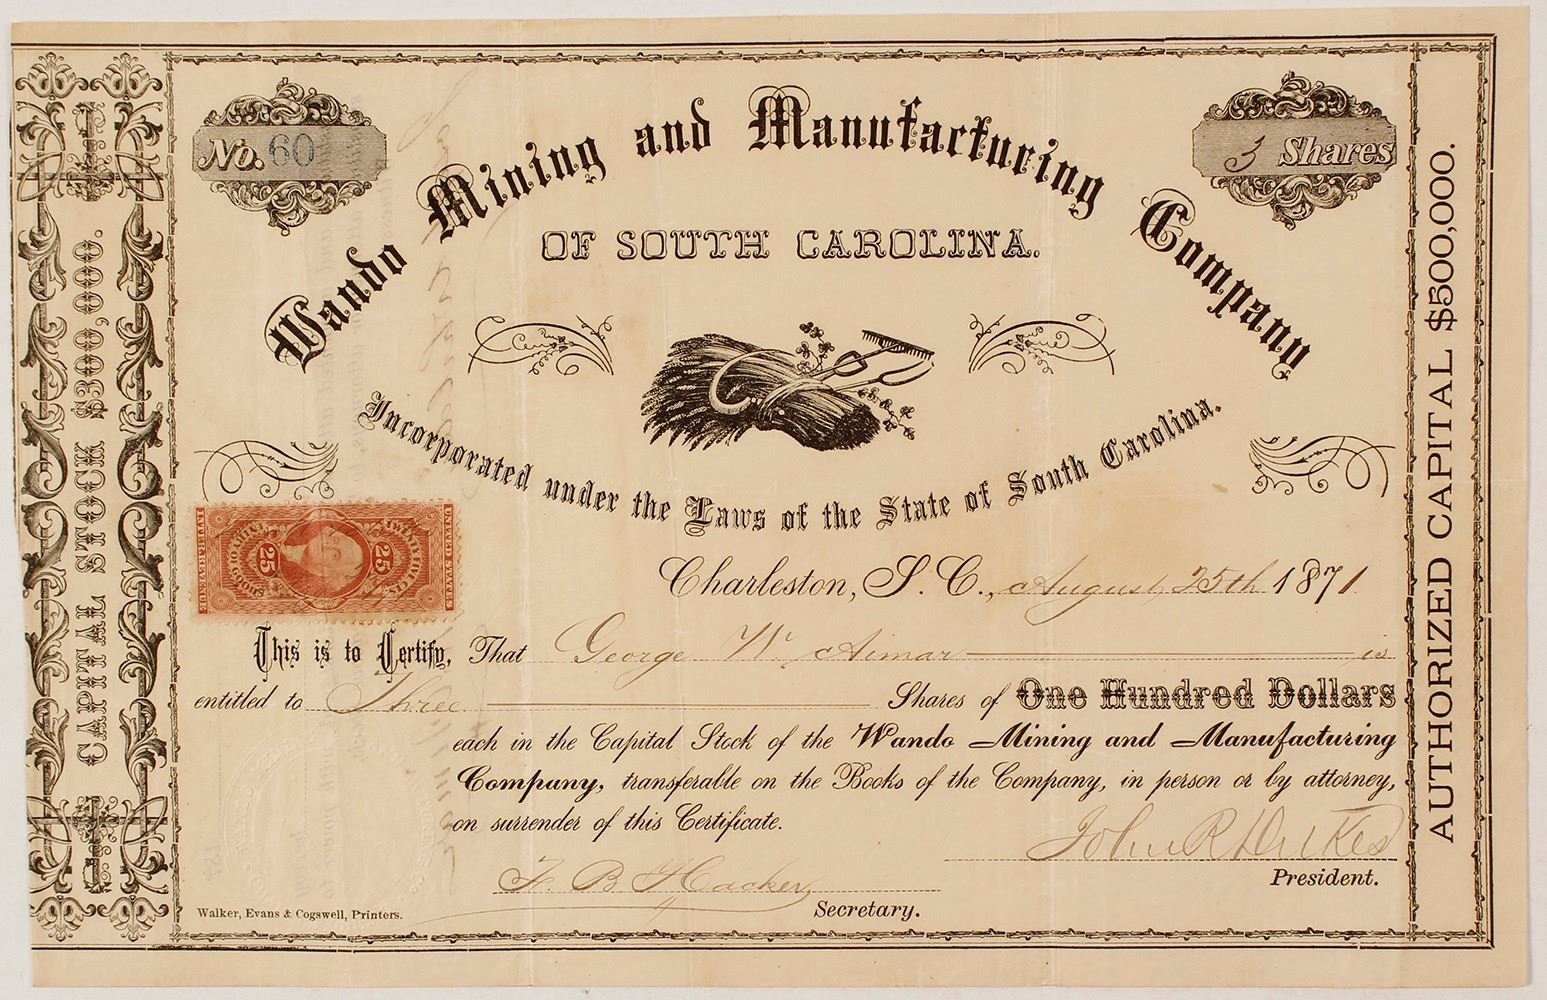 No. 60
3 Shares
Wando Mining and Manufacturing Company
OF SOUTH CAROLINA.
Incorporated under the Laws of the State of South Carolina.
CAPITAL STOCK $300,000.
AUTHORIZED CAPITAL $500,000.
UNITED STATES
TWENTY FIVE CTS.
25 25
INTER. REVENUE
Charleston, S. C., August 25th 1871
This is to Certify, That George W Aimar is
entitled to Three Shares of One Hundred Dollars
each in the Capital Stock of the Wando Mining and Manufacturing
Company, transferable on the Books of the Company, in person or by attorney,
on surrender of this Certificate.
John R Dukes
President.
F. B. Hacker
Secretary.
Walker, Evans & Cogswell, Printers.